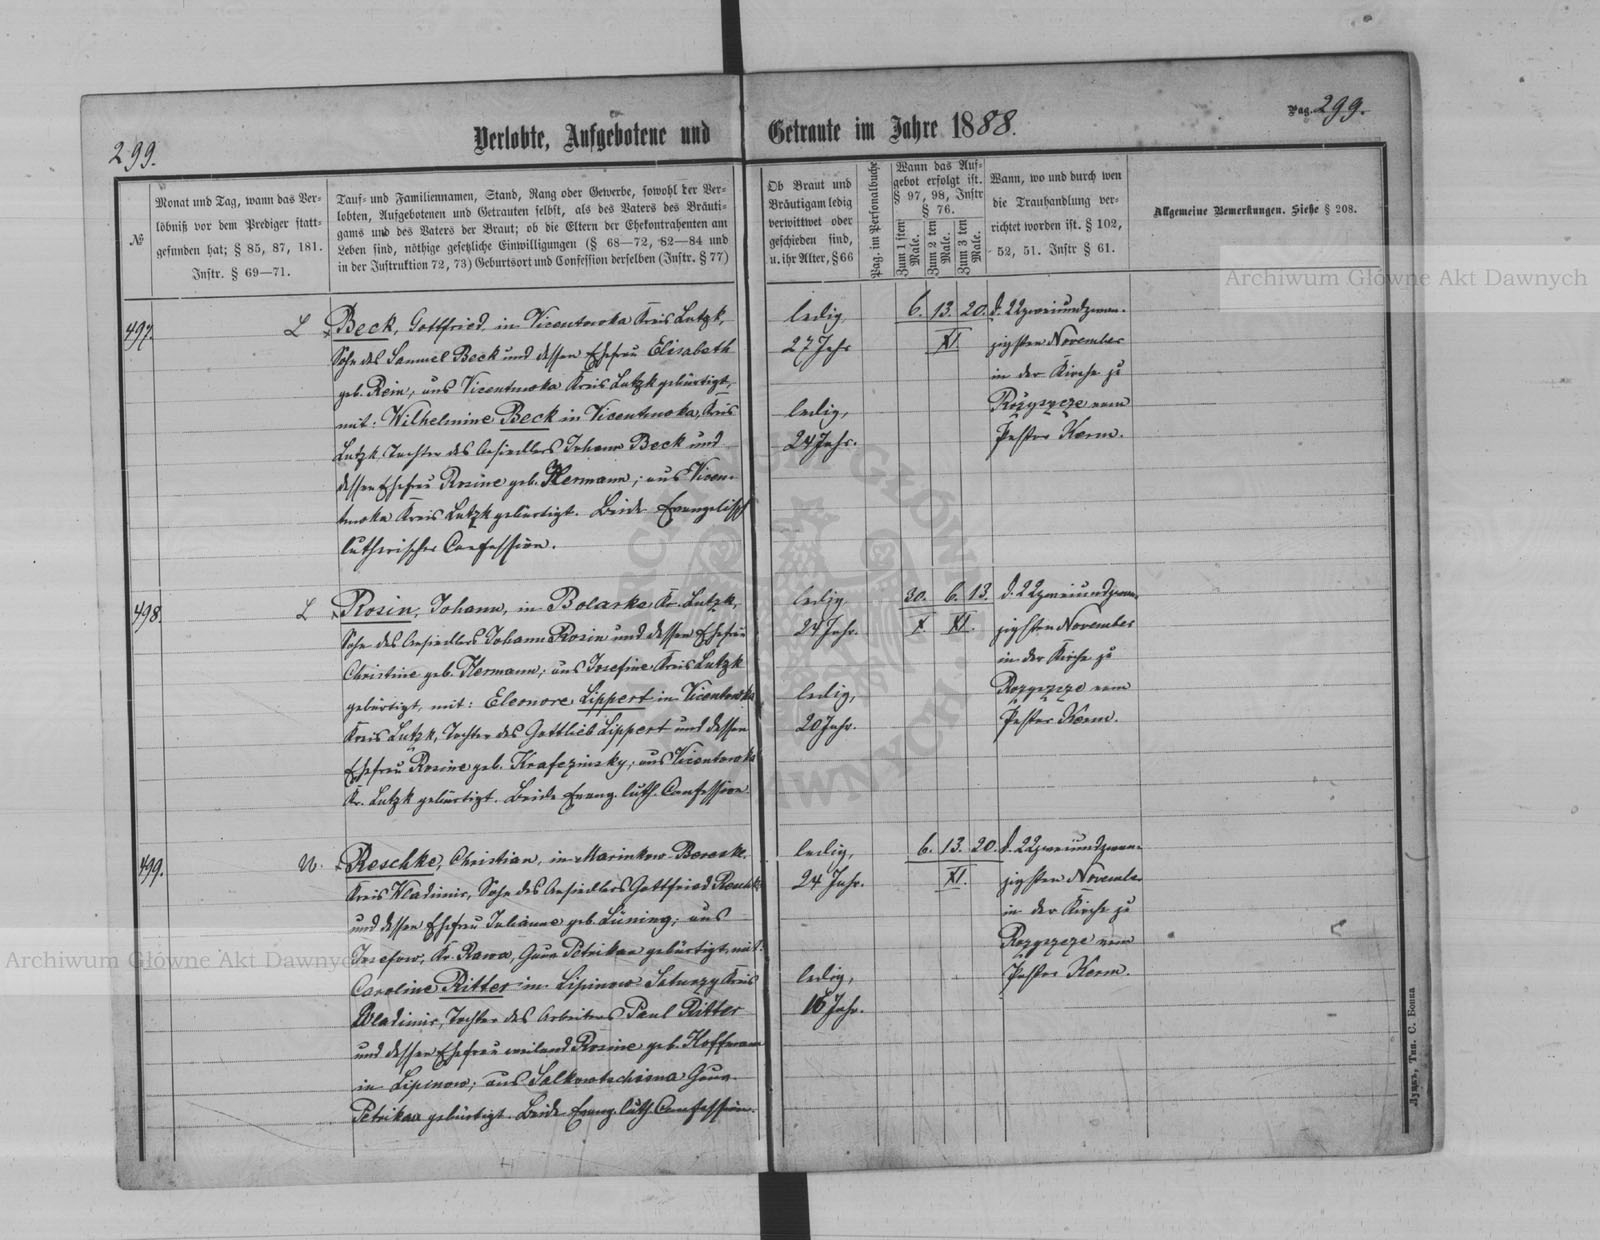 299.
Verlobte, Aufgebotene und Getraute im Jahre 1888.
Pag. 299.
№
Monat und Tag, wann das Ver-
löbniß vor dem Prediger statt-
gefunden hat; § 85, 87, 181.
Instr. § 69—71.
Tauf- und Familiennamen, Stand, Rang oder Gewerbe, sowohl der Ver-
lobten, Aufgebotenen und Getrauten selbst, als des Vaters des Bräuti-
gams und des Vaters der Braut; ob die Eltern der Ehekontrahenten am
Leben sind, nöthige gesetzliche Einwilligungen (§ 68—72, 82—84 und
in der Instruktion 72, 73) Geburtsort und Confession derselben (Instr. § 77)
Ob Braut und
Bräutigam ledig
verwittwet oder
geschieden sind,
u. ihr Alter, § 66
Pag. im Personalbuche
Wann das Auf-
gebot erfolgt ist.
§ 97, 98, Instr
§ 76.
Zum 1 sten Male.
Zum 2 ten Male.
Zum 3 ten Male.
Wann, wo und durch wen
die Trauhandlung ver-
richtet worden ist. § 102,
52, 51. Instr § 61.
Allgemeine Bemerkungen. Siehe § 208.
Archiwum Główne Akt Dawnych
497.
L
Beck, Gottfried in Vicentowka Kreis Lutzk,
Sohn des Samuel Beck und dessen Ehefrau Elisabeth
geb. Rein, aus Vicentowka Kreis Lutzk gebürtigt,
mit: Wilhelmine Beck in Vicentowka, Kreis
Lutzk, Tochter des Ansiedlers Johann Beck und
dessen Ehefrau Rosine geb. Hermann; aus Vicen-
towka Kreis Lutzk gebürtigt. Beide Evangelisch
lutherischer Confession.
ledig,
27 Jahr
ledig,
24 Jahr.
6. 13. 20.
XI.
d. 22 zweiundzwan-
zigsten November
in der Kirche zu
Rożyszcze vom
Pastor Kerm.
498.
L
Rosin, Johann, in Bolarke Kr. Lutzk,
Sohn des Ansiedlers Johann Rosin und dessen Ehefrau
Christine geb. Hermann; aus Josefine Kreis Lutzk
gebürtigt, mit: Eleonore Lippert in Vicentowka
Kreis Lutzk, Tochter des Gottlieb Lippert und dessen
Ehefrau Rosine geb. Krafczinsky; aus Vicentowka
Kr. Lutzk gebürtigt. Beide Evang. luth. Confession.
ledig,
24 Jahr.
ledig,
20 Jahr.
30. 6. 13.
X. XI.
d. 22 zweiundzwan-
zigsten November
in der Kirche zu
Rozyszcze vom
Pastor Kerm.
499.
W.
Reschke, Christian, in Marinkow-Bereske.
Kreis Wladimir, Sohn des Ansiedlers Gottfried Reschke
und dessen Ehefrau Julianne geb. Lüning; aus
Josefow, Kr. Rawa, Gouv. Petrikau gebürtigt, mit:
Caroline Ritter in Lipinow Kreis
Wladimir, Tochter des Arbeiters Paul Ritter
und dessen Ehefrau weiland Rosine geb. Hoffmann
in Lipinow; aus Gouv.
Petrikau gebürtigt. Beide Evang. luth. Confession.
ledig,
24 Jahr.
ledig,
Jahr.
6. 13. 20.
XI.
d. 22 zweiundzwan-
zigsten November
in der Kirche zu
Rozyszcze vom
Pastor Kerm.
Archiwum Główne Akt Dawnych
Луцкъ, Тип. С. Бонка